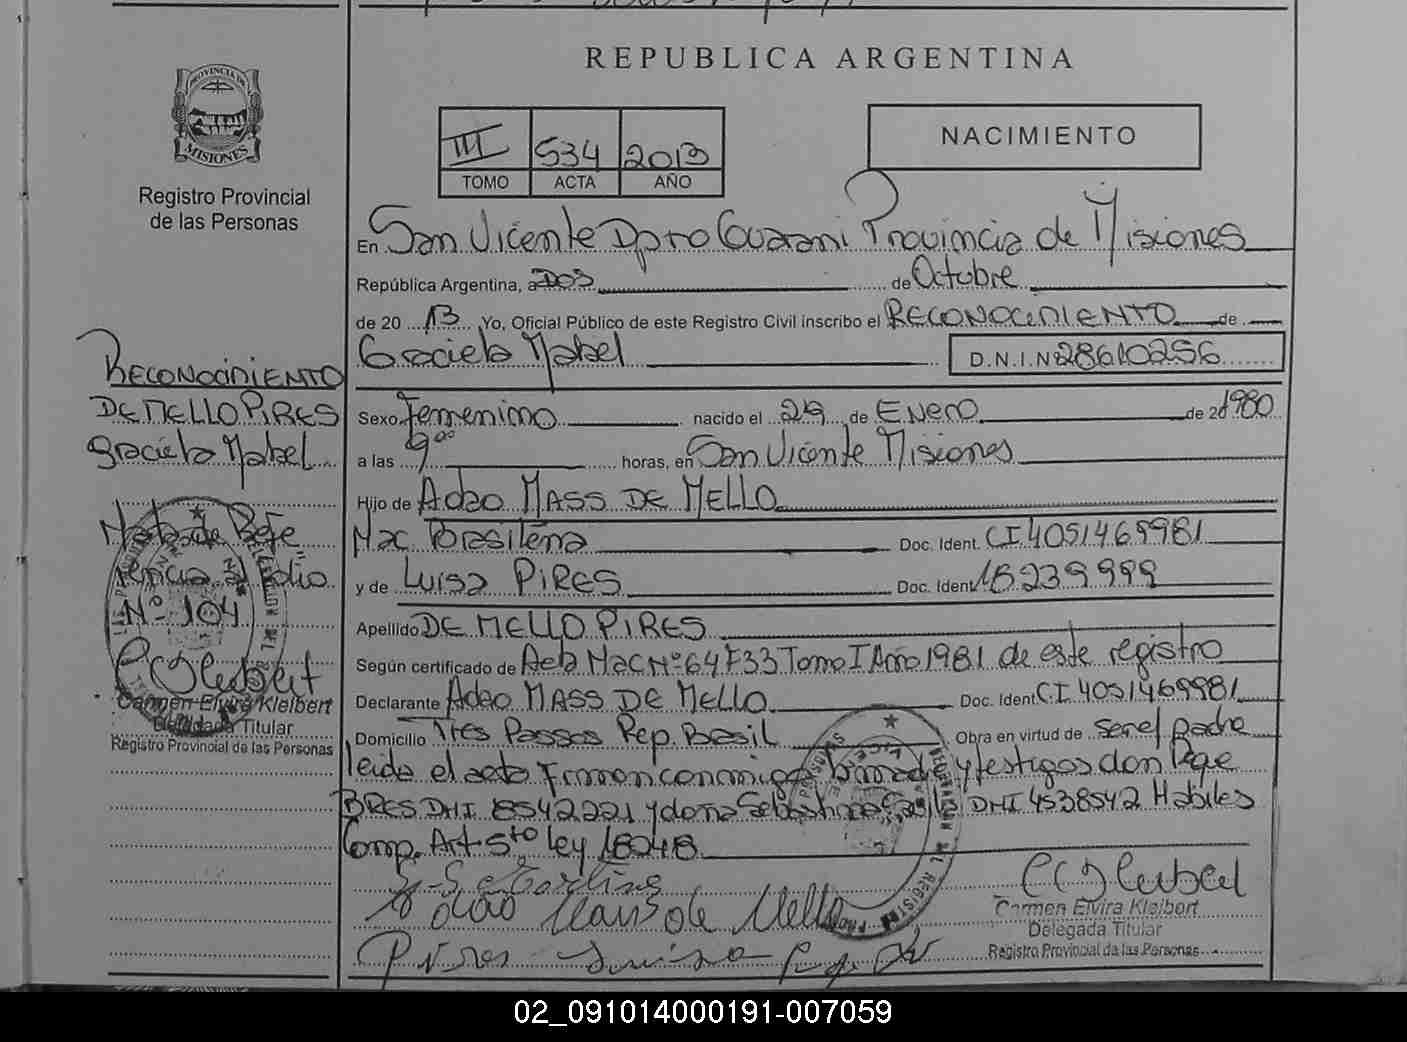 REPUBLICA ARGENTINA
PROVINCIA DE
MISIONES
Registro Provincial
de las Personas
III 534 2013
TOMO ACTA AÑO
NACIMIENTO
En San Vicente Dpto Guarani Provincia de Misiones
República Argentina, a Dos de Octubre
de 20 13 Yo, Oficial Público de este Registro Civil inscribo el RECONOCIMIENTO de
Graciela Mabel D.N.I.Nº 28610256
Sexo Femenino nacido el 29 de Enero de 20 1980
a las 9ºº horas, en San Vicente Misiones
Hijo de Adao MASS DE MELLO
Nac Brasileña Doc. Ident. CI 4051469981
y de Luisa PIRES Doc. Ident 18239999
Apellido DE MELLO PIRES
Según certificado de Acta Nac Nº 64 F33 Tomo I Año 1981 de este registro
Declarante Adao MASS DE MELLO Doc. Ident CI 4051469981
Domicilio Tres Passos Rep. Brasil Obra en virtud de ser el padre
leida el acta Firman conmigo la madre y testigos don
PIRES DNI 8542221 y doña DNI 4538542 Habiles
Comp. Art 5to ley 18048
Adao Mass de Mello
Pires Luisa
Carmen Elvira Kleibert
Delegada Titular
Registro Provincial de las Personas
RECONOCIMIENTO
DE MELLO PIRES
Graciela Mabel
Nota de Refe
rencia al Folio
Nº 104
Carmen Elvira Kleibert
Delegada Titular
Registro Provincial de las Personas
02_091014000191-007059